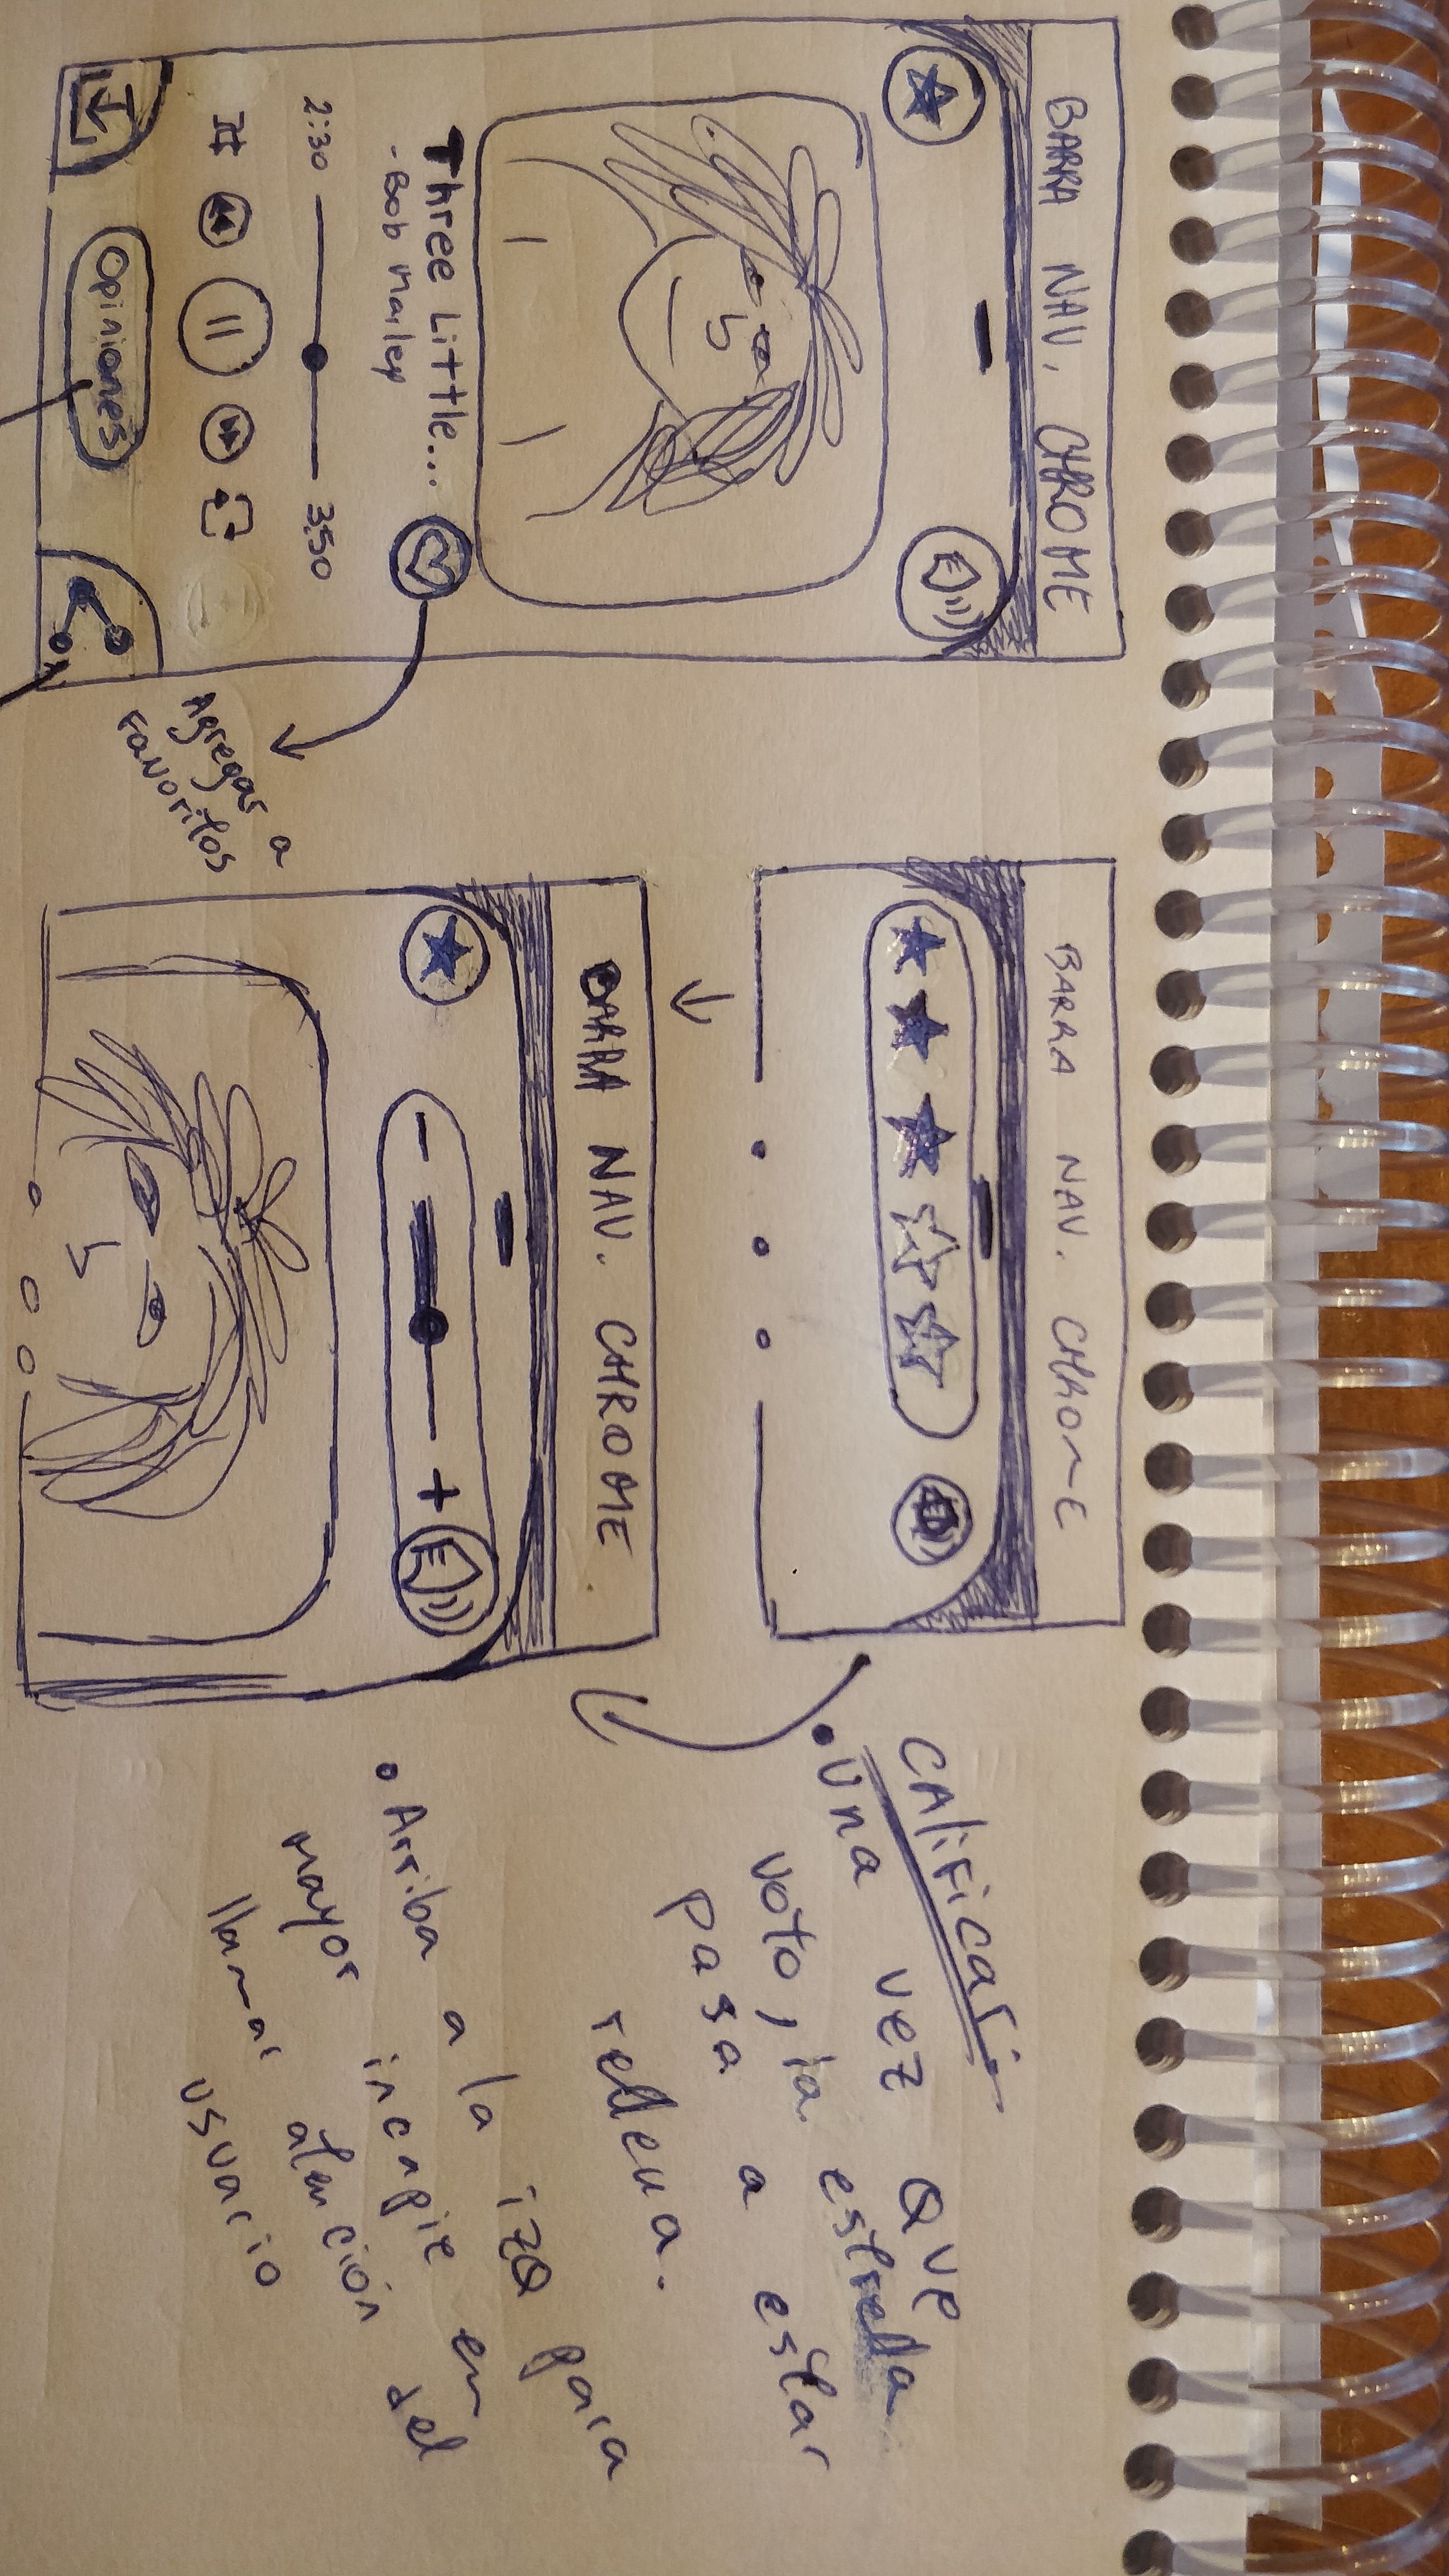 BARRA NAV. CHROME
Three Little...
-Bob Marley
2:30
3:50
Opiniones
Agregar a
Favoritos
BARRA NAV. CHROME
BARRA NAV. CHROME
- +
CAlificar:
• Una vez que
voto, la estrella
pasa a estar
rellena.
• Arriba a la izq para
mayor incapie en
llamar atención del
usuario